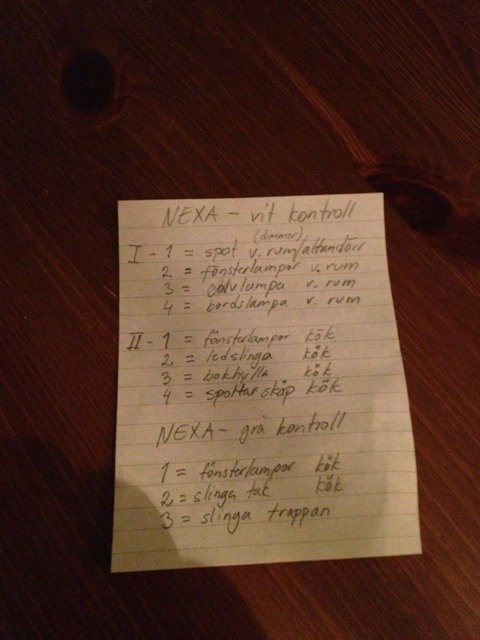 NEXA - vit kontroll
(dimmer)
I - 1 = spot v. rum/altandörr
2 = fönsterlampor v. rum
3 = golvlampa v. rum
4 = bordslampa v. rum
II - 1 = fönsterlampor kök
2 = ledslinga kök
3 = bokhylla kök
4 = spottar skåp kök
NEXA - grå kontroll
1 = fönsterlampor kök
2 = slinga tak kök
3 = slinga trappan